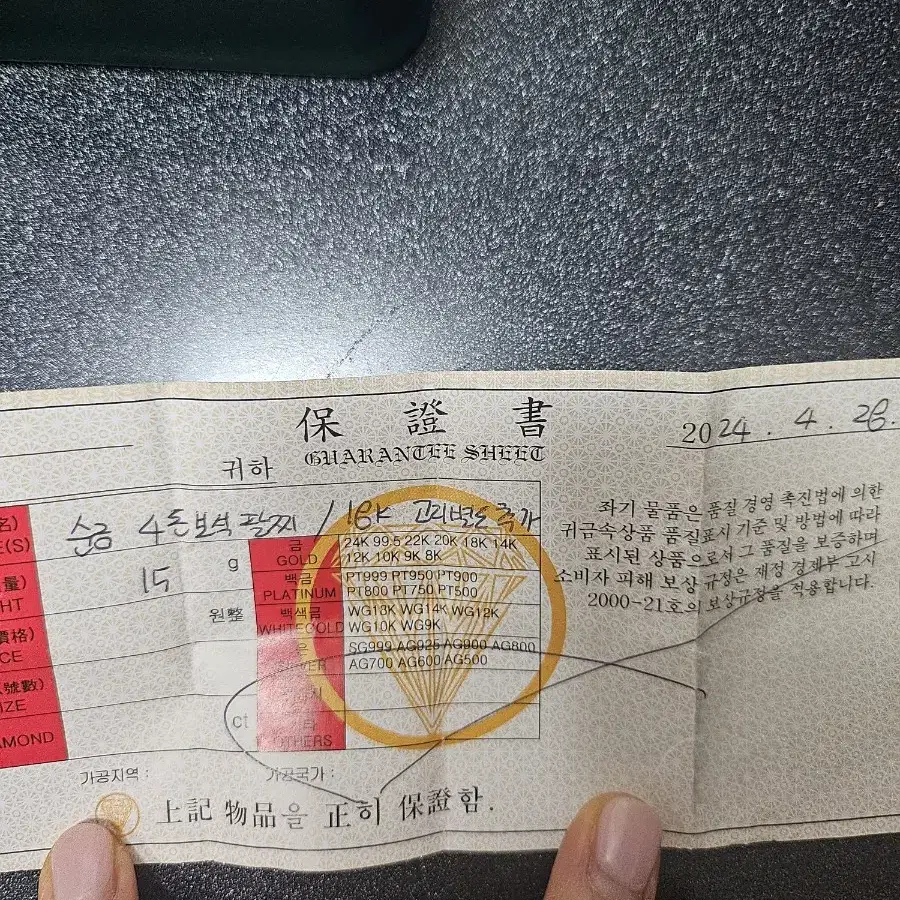 保證書
GUARANTEE SHEET
귀하
2024. 4. 28.
순금 4돈 보석 팔찌 / 18K 고리별도 추가
15 g
원整
ct
금 24K 99.5 22K 20K 18K 14K
GOLD 12K 10K 9K 8K
백금 PT999 PT950 PT900
PLATINUM PT800 PT750 PT500
백색금 WG18K WG14K WG12K
WHITEGOLD WG10K WG9K
SG999 AG925 AG900 AG800
SILVER AG700 AG600 AG500
OTHERS
좌기 물품은 품질 경영 촉진법에 의한
귀금속상품 품질표시 기준 및 방법에 따라
표시된 상품으로서 그 품질을 보증하며
소비자 피해 보상 규정은 재정 경제부 고시
2000-21호의 보상규정을 적용합니다.
가공지역 :
가공국가 :
上記 物品을 正히 保證함.